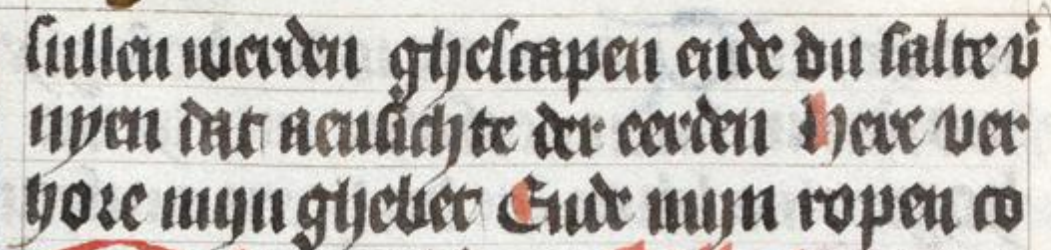 sullen werden ghescapen ende du salte v̄
nyen dat aensichte der eerden Here ver
hore mijn ghebet Ende mijn ropen co